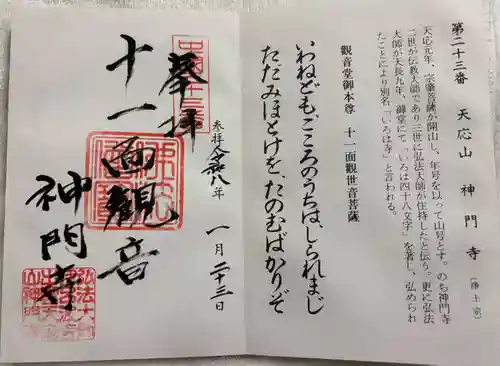 第二十三番　天応山　神門寺　（浄土宗）
天応元年、宗肇菩薩が開山し、年号を以って山号とす。のち神門寺
二世が伝教大師であり三世に弘法大師が住持したと伝う。更に弘法
大師が天長九年、御堂にて「いろは四十八文字」を著し、弘められ
たことにより別名、「いろは寺」と言われる。
観音堂御本尊　十一面観世音菩薩
いわねどもこころのうちは、しられまじ
ただみほとけを、たのむばかりぞ
中国二十三番
奉拝
参拝 令和八年　一月二十三日
十一面観音
神門寺